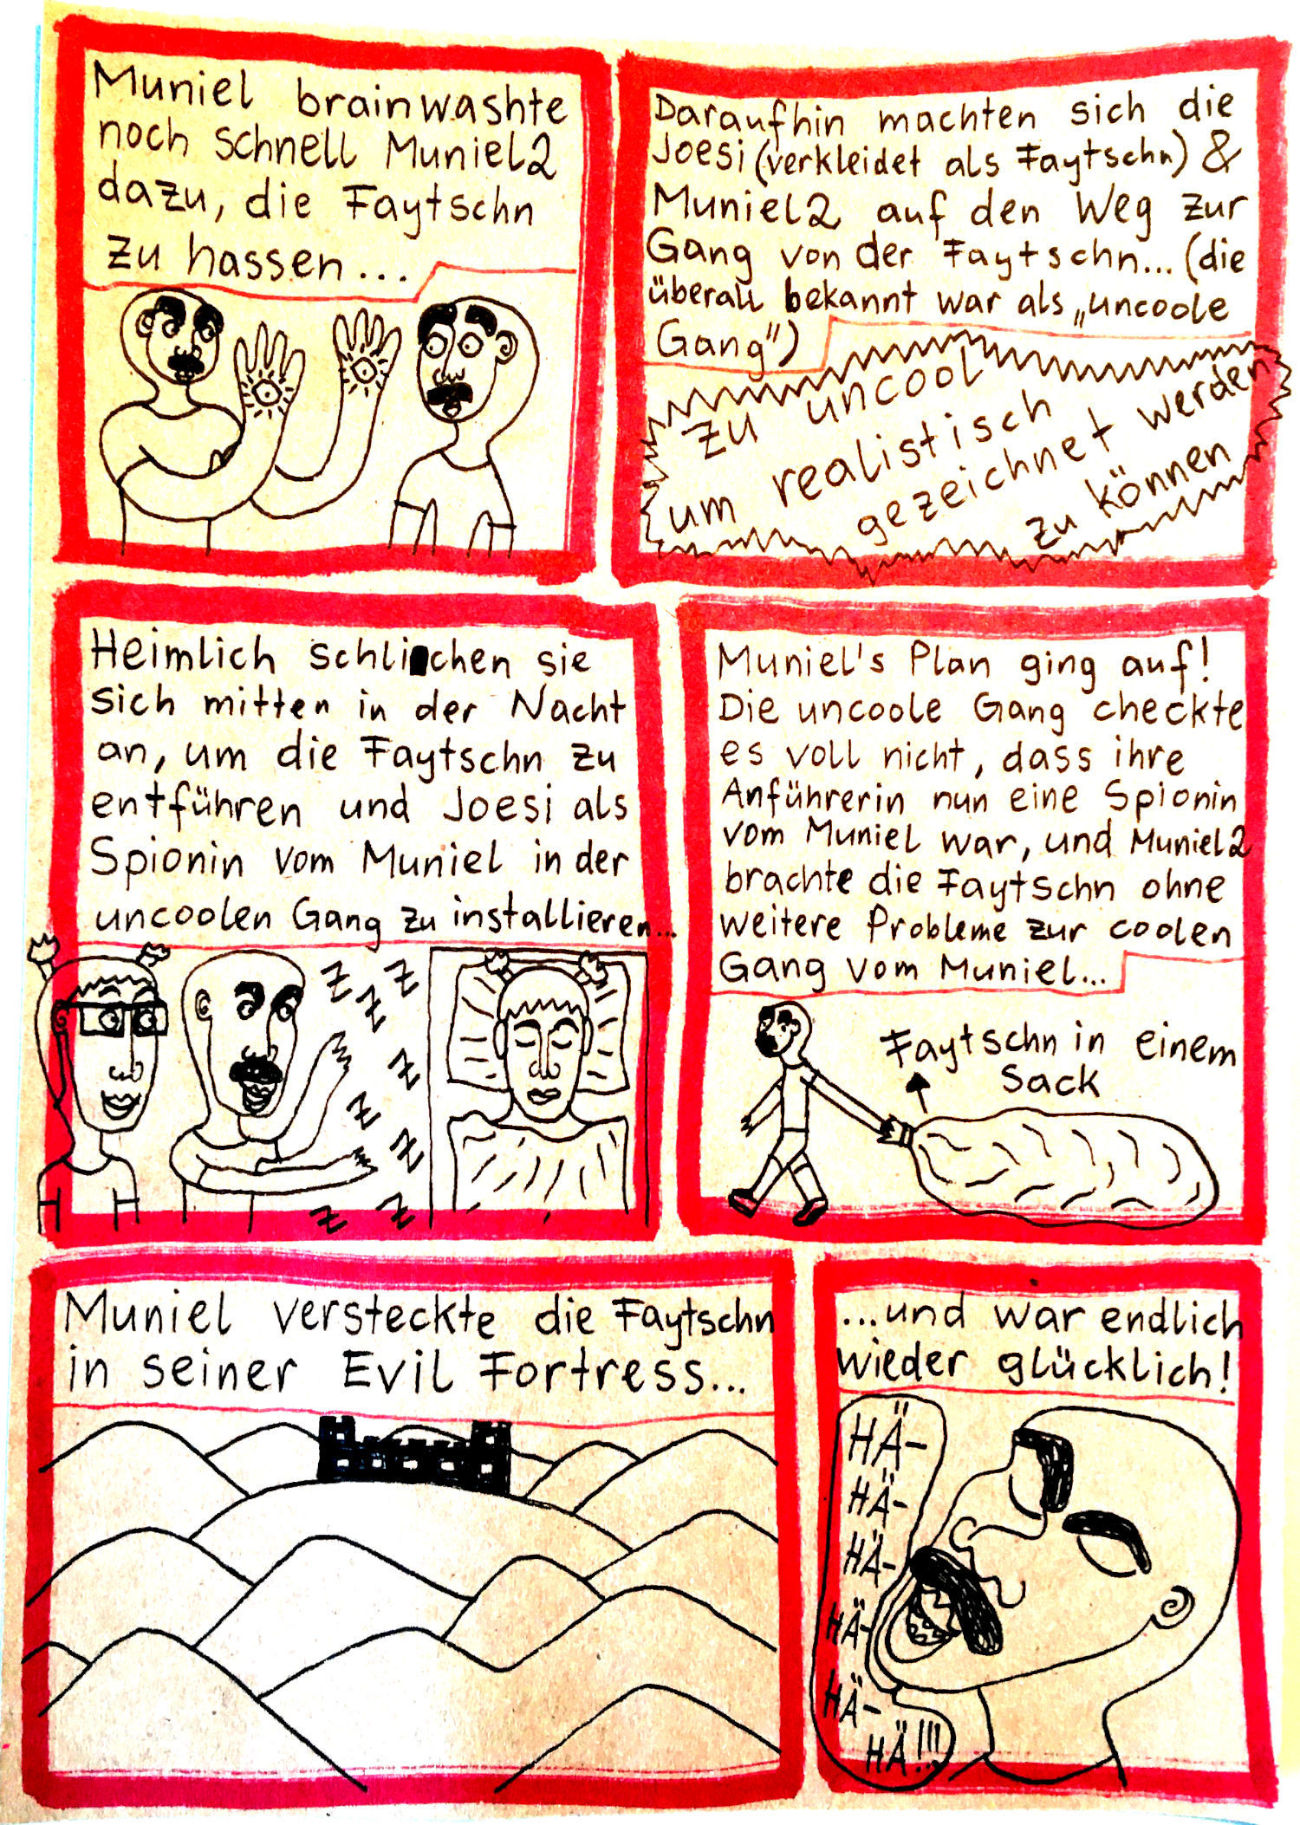 Muniel brainwashte
noch schnell Muniel2
dazu, die Faytschn
zu hassen...
Daraufhin machten sich die
Joesi (verkleidet als Faytschn) &
Muniel2 auf den Weg zur
Gang von der Faytschn... (die
überall bekannt war als „uncoole
Gang")
zu uncool
um realistisch
gezeichnet werden
zu können
Heimlich schlichen sie
sich mitten in der Nacht
an, um die Faytschn zu
entführen und Joesi als
Spionin vom Muniel in der
uncoolen Gang zu installieren...
Z Z
Z
Z
Z
Z
Z Z
Muniel's Plan ging auf!
Die uncoole Gang checkte
es voll nicht, dass ihre
Anführerin nun eine Spionin
vom Muniel war, und Muniel2
brachte die Faytschn ohne
weitere Probleme zur coolen
Gang vom Muniel...
Faytschn in einem
Sack
Muniel versteckte die Faytschn
in seiner Evil Fortress...
...und war endlich
wieder glücklich!
HÄ-
HÄ-
HÄ-
HÄ-
HÄ-
HÄ!!!